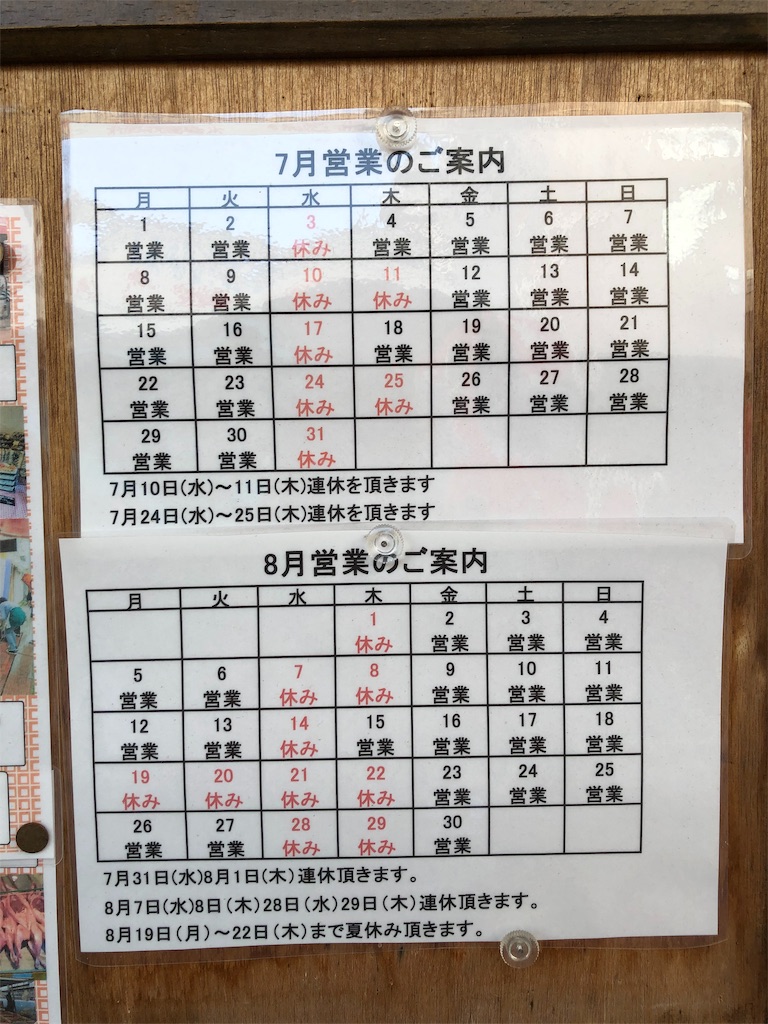 7月営業のご案内
月 火 水 木 金 土 日
1 2 3 4 5 6 7
営業 営業 休み 営業 営業 営業 営業
8 9 10 11 12 13 14
営業 営業 休み 休み 営業 営業 営業
15 16 17 18 19 20 21
営業 営業 休み 営業 営業 営業 営業
22 23 24 25 26 27 28
営業 営業 休み 休み 営業 営業 営業
29 30 31
営業 営業 休み
7月10日(水)～11日(木)連休を頂きます
7月24日(水)～25日(木)連休を頂きます
8月営業のご案内
月 火 水 木 金 土 日
1 2 3 4
休み 営業 営業 営業
5 6 7 8 9 10 11
営業 営業 休み 休み 営業 営業 営業
12 13 14 15 16 17 18
営業 営業 休み 営業 営業 営業 営業
19 20 21 22 23 24 25
休み 休み 休み 休み 営業 営業 営業
26 27 28 29 30
営業 営業 休み 休み 営業
7月31日(水)8月1日(木)連休頂きます。
8月7日(水)8日(木)28日(水)29日(木)連休頂きます。
8月19日(月)～22日(木)まで夏休み頂きます。